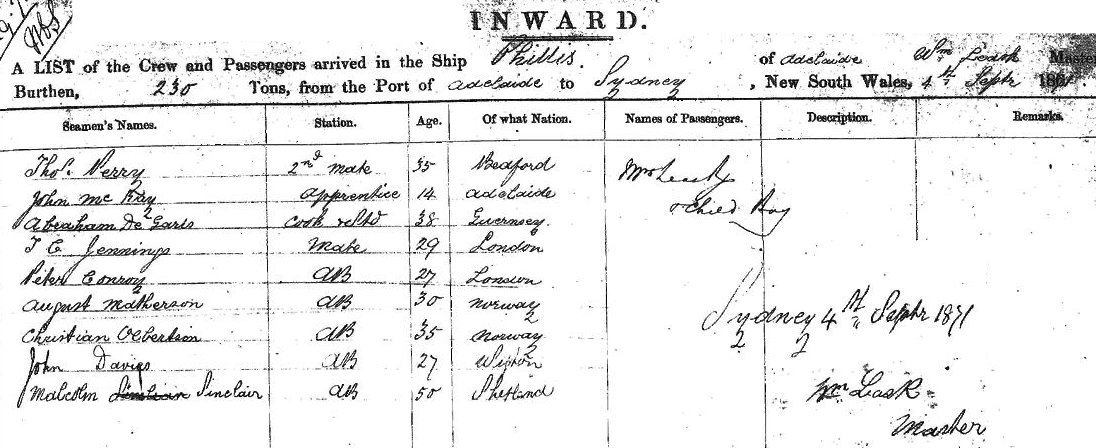 INWARD.
A LIST of the Crew and Passengers arrived in the Ship Phillis. of Adelaide Wm Leask Master
Burthen, 230 Tons, from the Port of Adelaide to Sydney, New South Wales, 4th Septr 1871
Seamen's Names. Station. Age. Of what Nation. Names of Passengers. Description. Remarks.
Thos. Perry 2nd mate 35 Bedford Mrs Leask
John Mc Kay apprentice 14 Adelaide & Child Boy
Abraham De Garis Cook & Std 38 Guernsey
T E Jennings Mate 29 London
Peter Conroy AB 27 London
August Matherson AB 30 Norway Sydney 4th Septr 1871
Christian Olbertson AB 35 Norway
John Davies AB 27 
Malcolm Sinclair AB 50 Shetland Wm Leask
Master